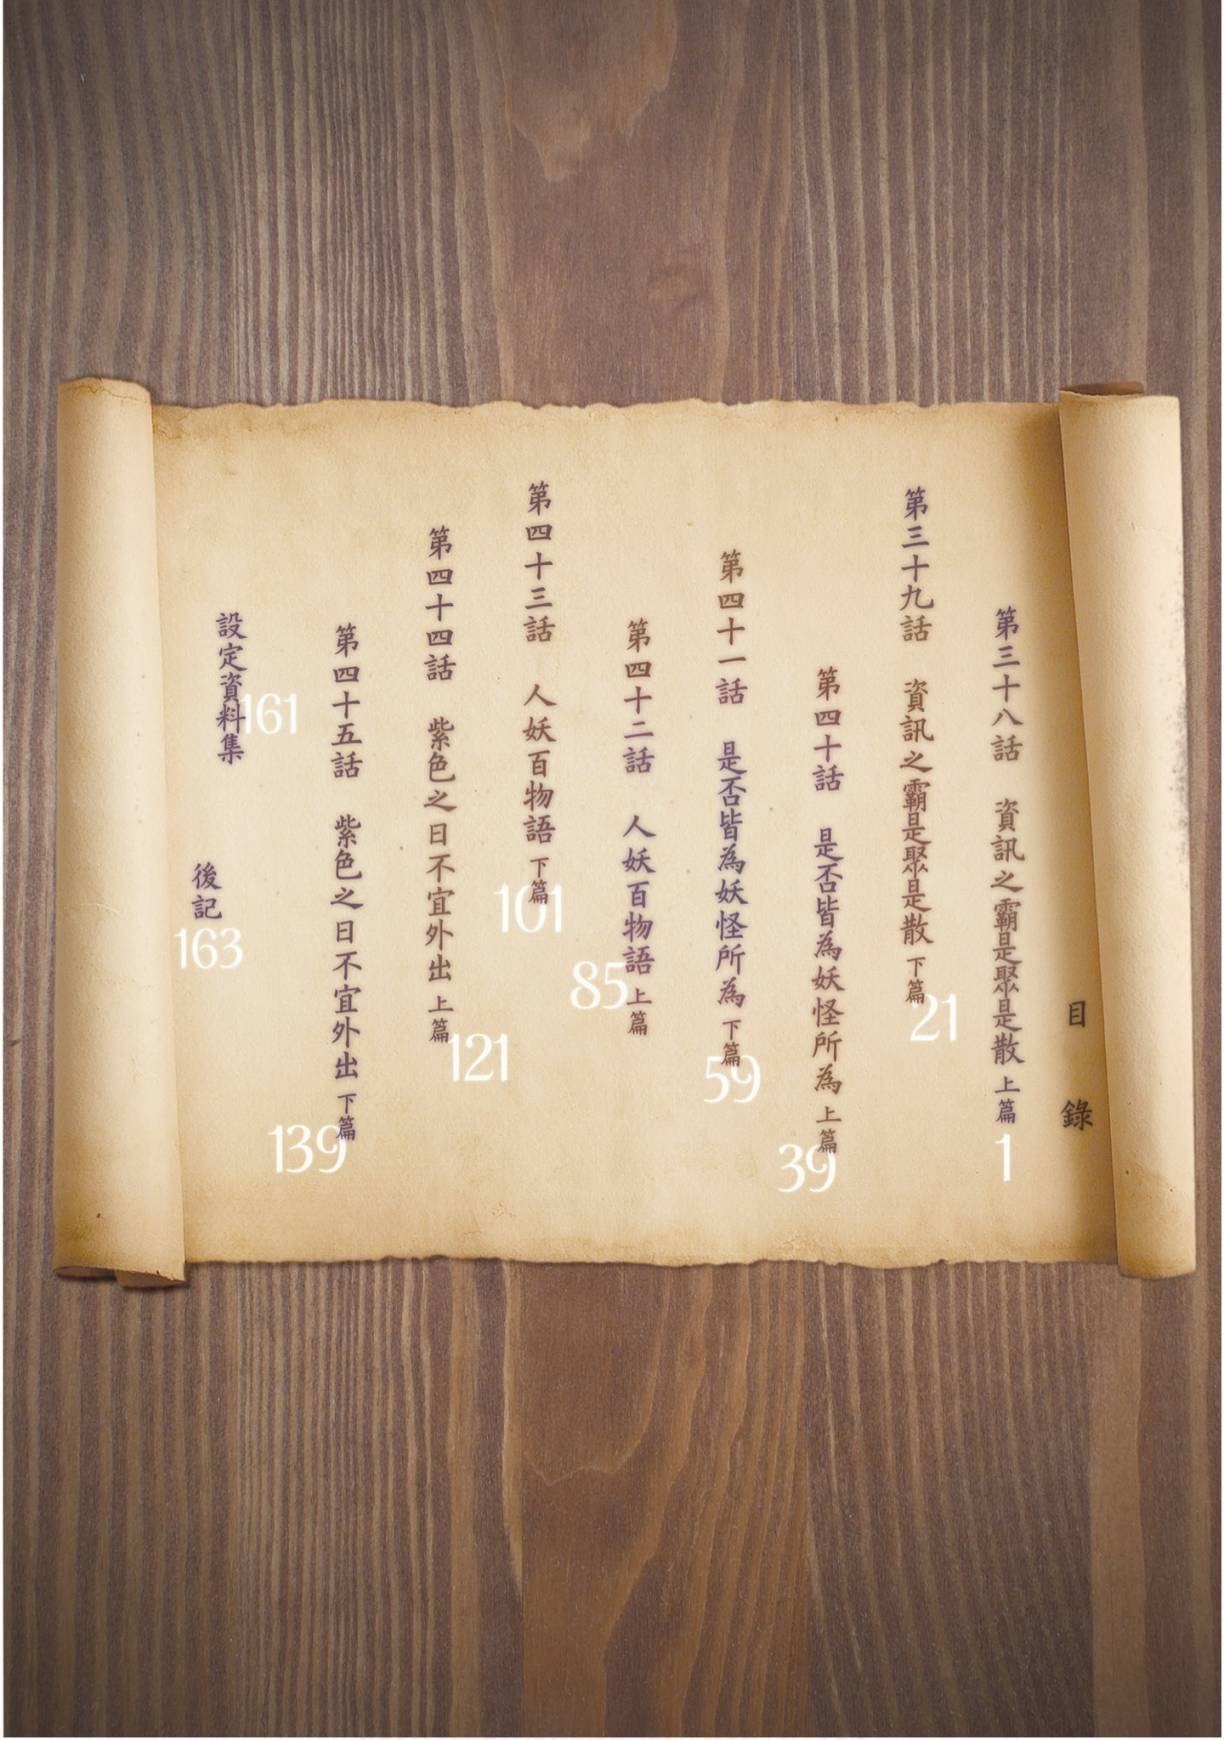 目錄
第三十八話 資訊之霸是聚是散 上篇
1
第三十九話 資訊之霸是聚是散 下篇
21
第四十話 是否皆為妖怪所為 上篇
39
第四十一話 是否皆為妖怪所為 下篇
59
第四十二話 人妖百物語 上篇
85
第四十三話 人妖百物語 下篇
101
第四十四話 紫色之日不宜外出 上篇
121
第四十五話 紫色之日不宜外出 下篇
139
設定資料集
161
後記
163